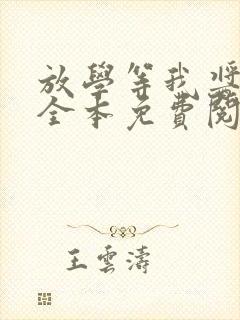 放學等我 蔣
全本免費閱
王雲濤